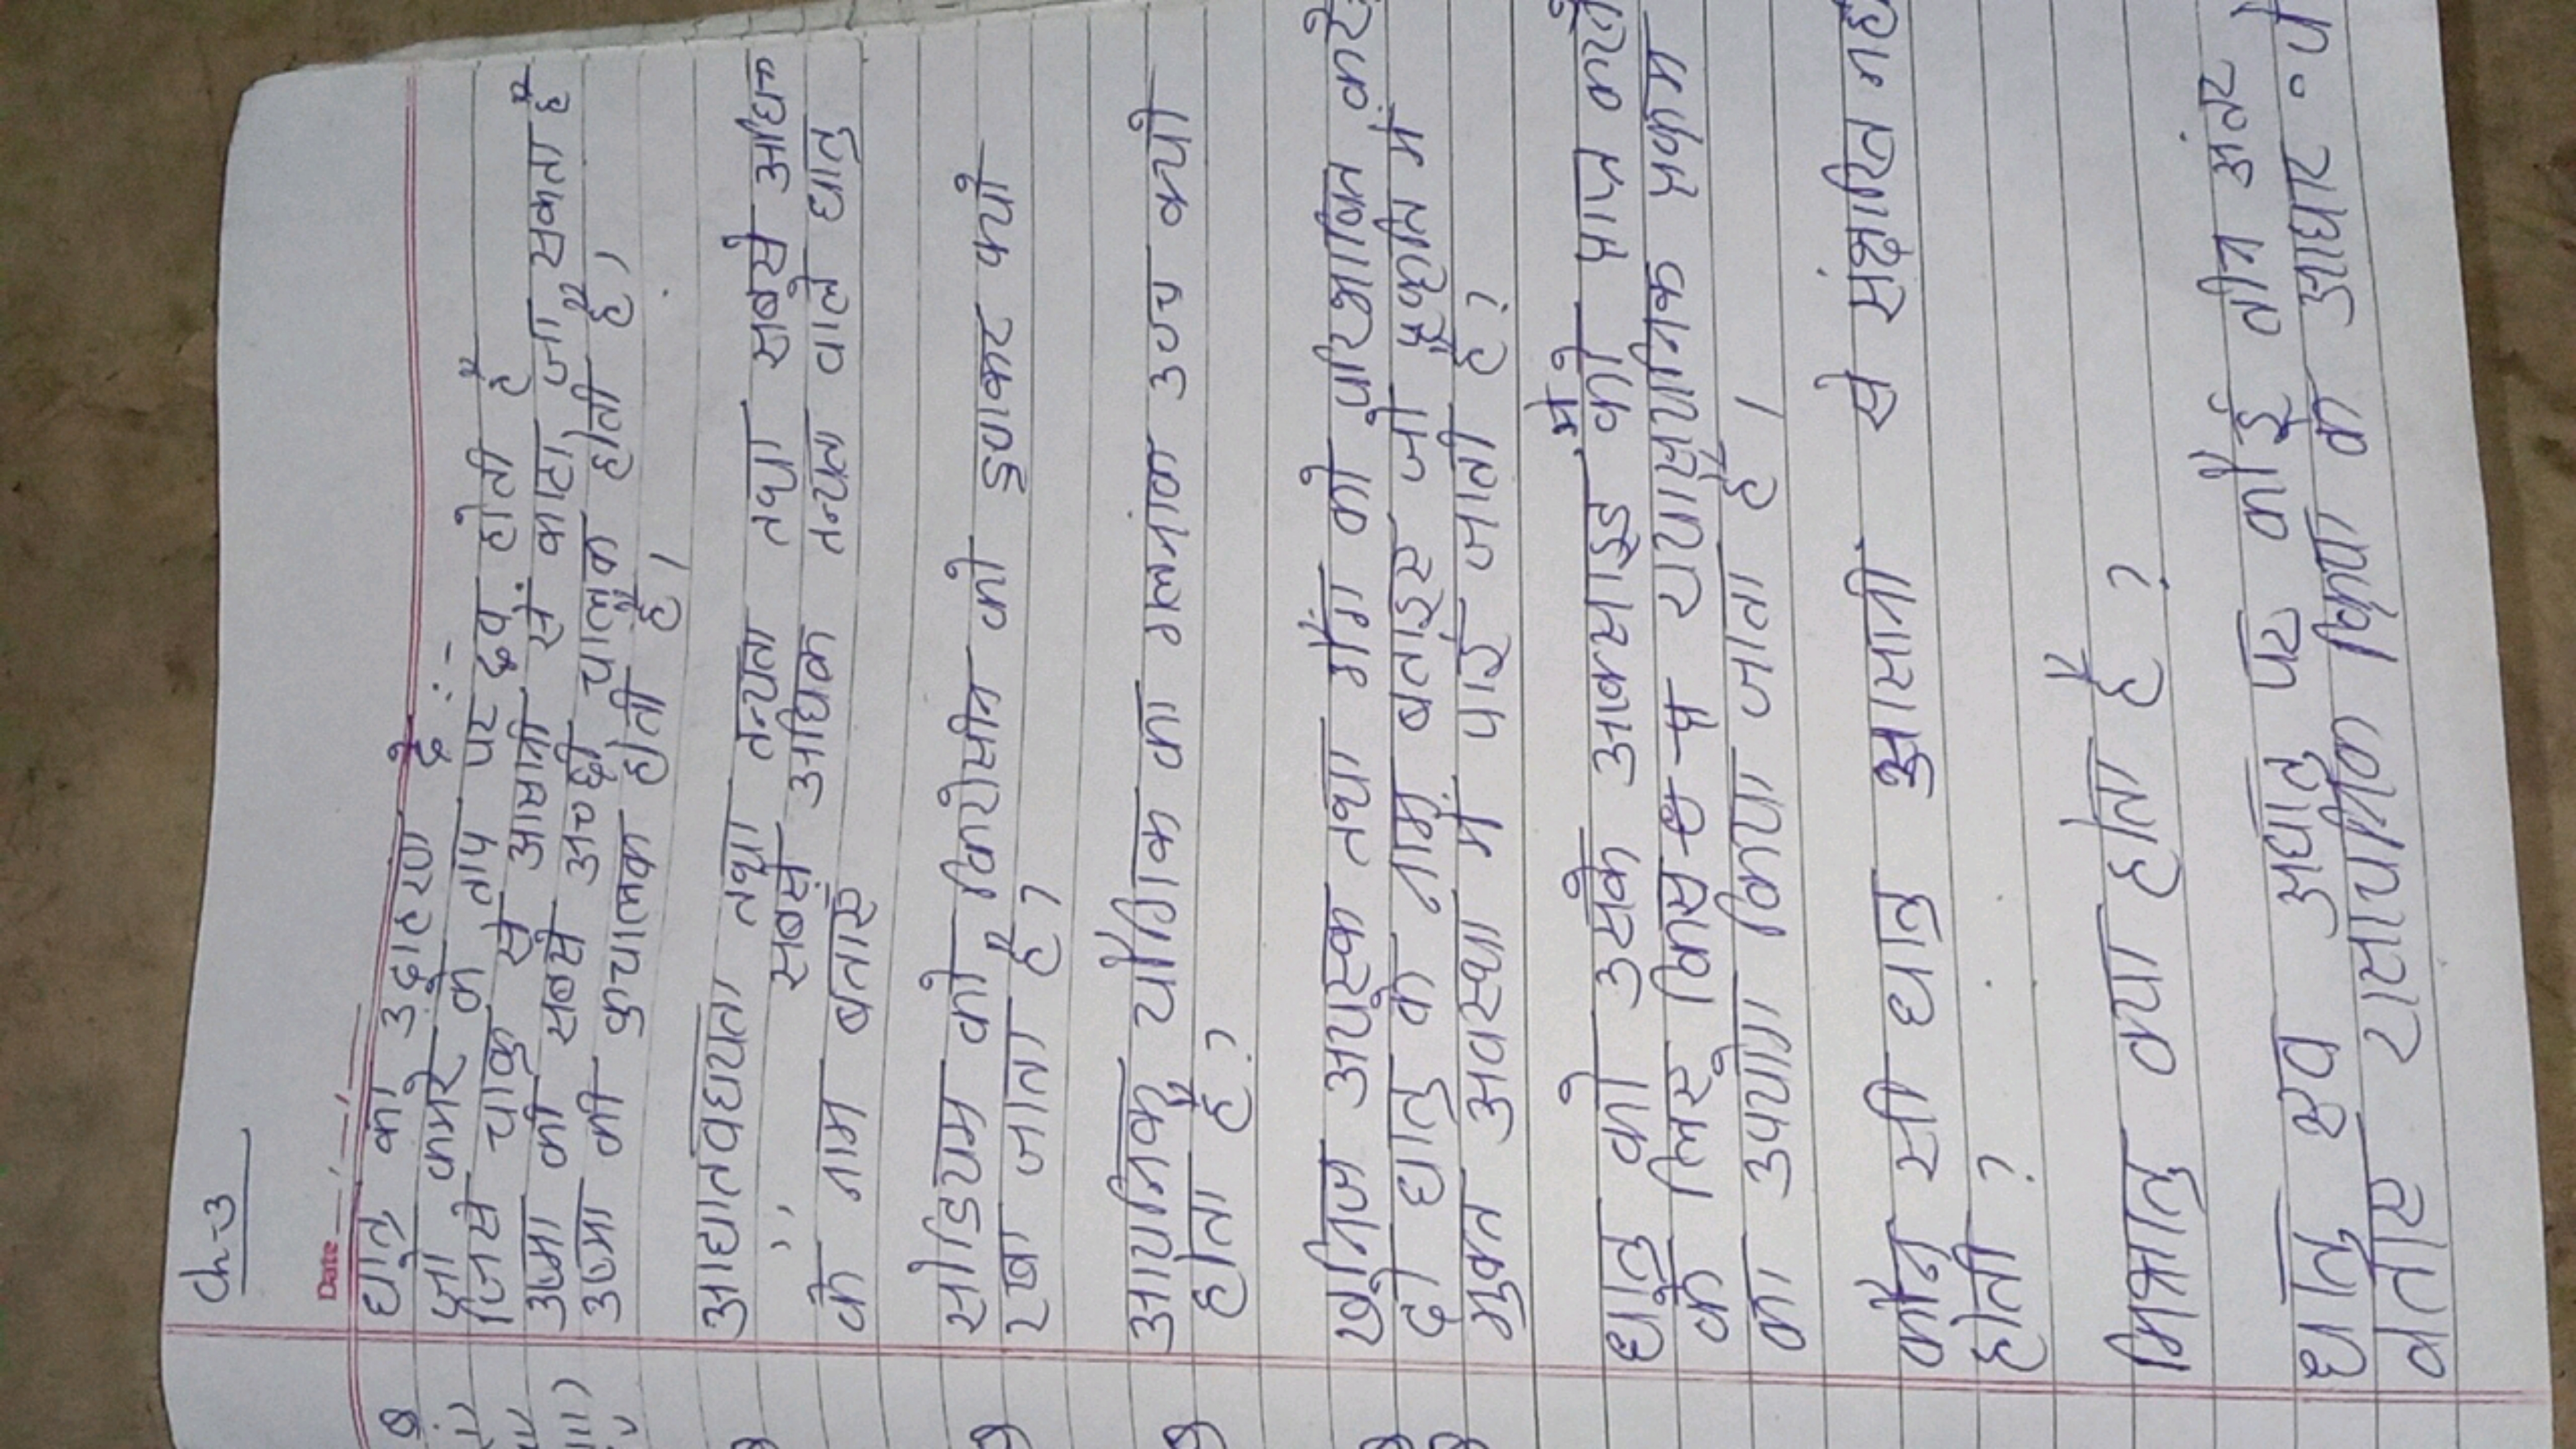 Ch-3
Date
धातु का उदाहरण दे :-
जो कमरे के ताप पर द्रव होती है
जिसे चाकु से आसानी से काटा जा सकता है
उष्मा की सबसे अच्छी चालक होती है,
उष्मा की कुचालक होती है,
आघातवर्धयता तथा तन्यता तथा सबसे अधिक
,, सबसे अधिक तन्यता वाले धातु
के नाम बताए
सोडियम को किरोसीन को डुबाकर क्यो
रखा जाता है?
आयनिक यौगिक का गलनांक उच्च क्यो
होता है?
खनिज अयस्क तथा गैंग को परिभाषित करे
दो धातु के नाम बताइए जो प्रकृति में
मुक्त अवस्था में पाई जाती है?
धातु को उसके आक्साइड में को प्राप्त करने
के लिए किस रासायनिक प्रक्रम
का उपयोग किया जाता है।
कौन सी धातु आसानी से संक्षारित नह
होती?
मिश्रातु क्या होता है?
धातु एव अधातु पर कोई तीन अंतर
बताए रासायनिक क्रिया के आधार प